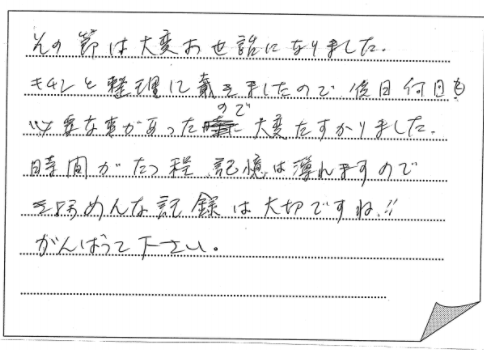 その節は大変お世話になりました.
キチンと整理に戴きましたので 後日何回も
必要な事があったので大変たすかりました.
時間がたつ程 記憶は薄れますので
きちょうめんな記録は大切ですね!!
がんばって下さい。